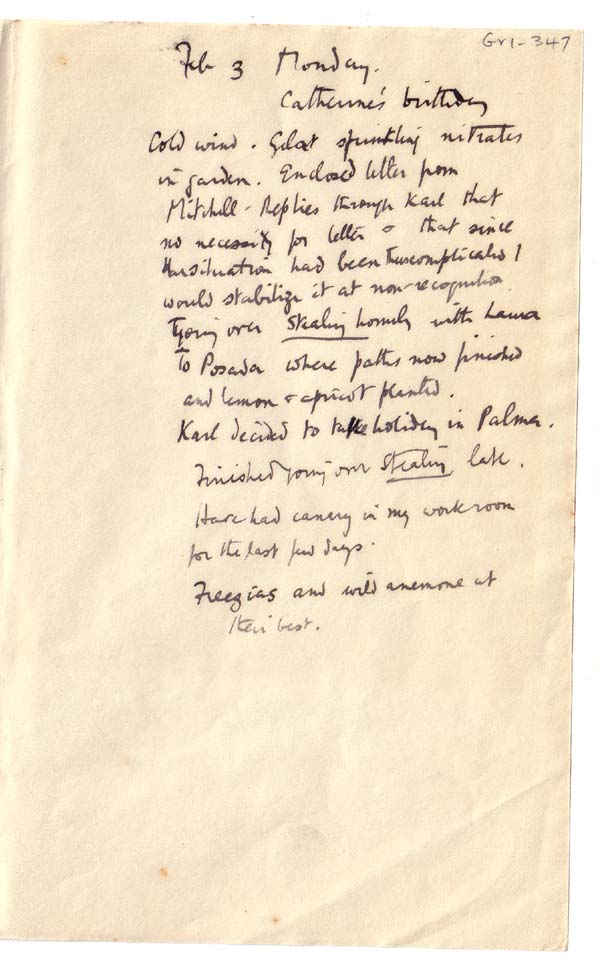 Gr1-347
Feb 3 Monday.
Catherine's birthday
Cold wind. Gelat sprinkling nitrates
in garden. Enclosed letter from
Mitchell. Replies through Karl that
no necessity for letter & that since
the situation had been thus complicated I
would stabilize it at non-recognition.
Going over Stealing homily with Laura
To Posada where paths now finished
and lemon & apricot planted.
Karl decided to take holiday in Palma.
Finished going over Stealing late.
Have had canary in my work room
for the last few days.
Freezias and wild anemone at
their best.